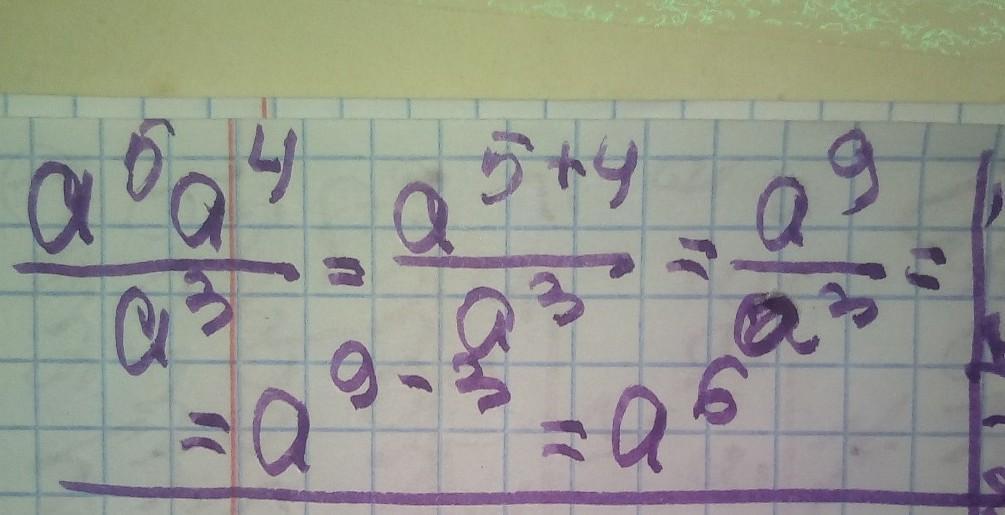 a⁵a⁴/a³ = a⁵⁺⁴/a³ = a⁹/a³ =
= a⁹⁻³ = a⁶